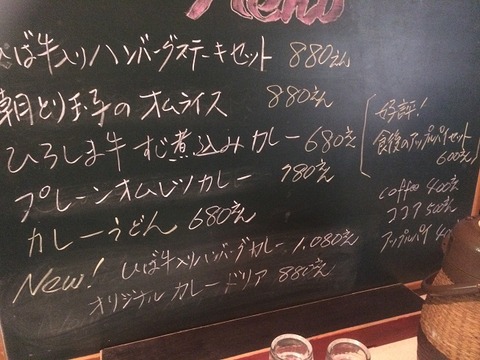 Menu
ひば牛入りハンバーグステーキセット 880えん
朝とり玉子のオムライス 880えん
ひろしま牛すじ煮込みカレー 680えん
プレーンオムレツカレー 780えん
カレーうどん 680えん
New! ひば牛入りハンバーグカレー 1,080えん
オリジナルカレードリア 880えん
好評!
食後のアップルパイセット
600えん
coffee 400えん
ココア 500えん
アップルパイ